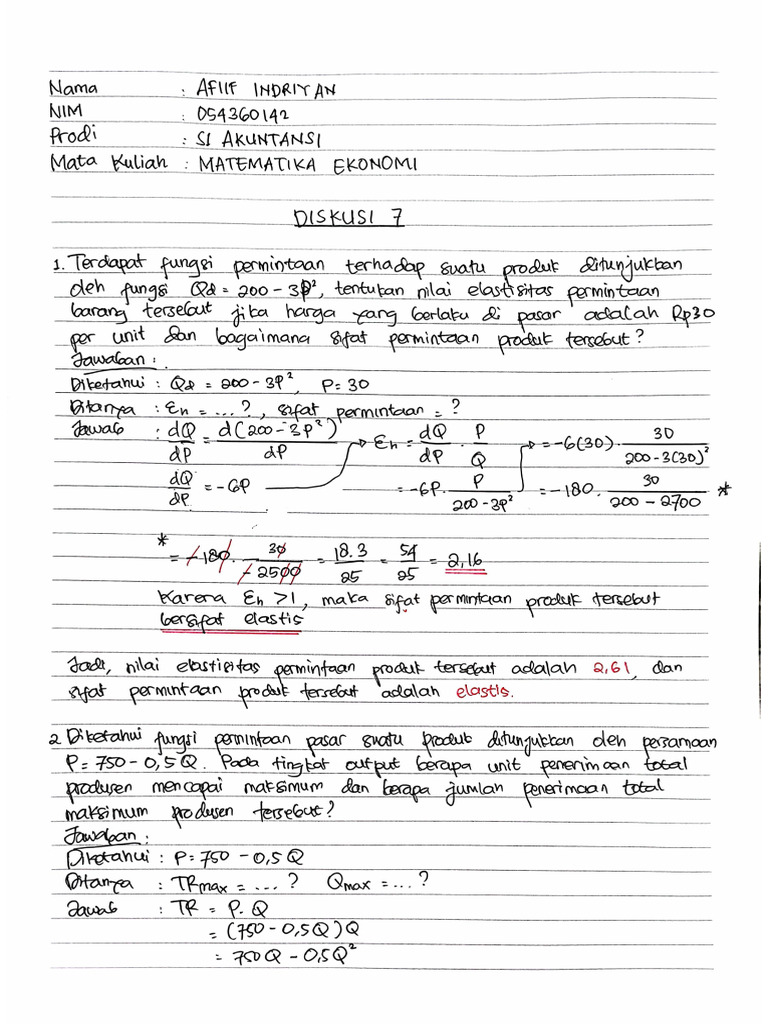 Nama : AFIIF INDRIYAN
NIM : 054360142
Prodi : S1 AKUNTANSI
Mata Kuliah : MATEMATIKA EKONOMI
DISKUSI 7
1. Terdapat fungsi permintaan terhadap suatu produk ditunjukkan
oleh fungsi Qd = 200 - 3P², tentukan nilai elastisitas permintaan
barang tersebut jika harga yang berlaku di pasar adalah Rp30
per unit dan bagaimana sifat permintaan produk tersebut?
Jawaban :
Diketahui : Qd = 200 - 3P², P = 30
Ditanya : Eh = ...?, sifat permintaan = ?
Jawab : dQ/dP = d(200 - 3P²)/dP → Eh = dQ/dP · P/Q → = -6(30) · 30/(200 - 3(30)²)
dQ/dP = -6P = -6P · P/(200 - 3P²) = -180 · 30/(200 - 2700) *
*
= -180 · 30/-2500 = 18.3/25 = 54/25 = 2,16
Karena Eh > 1, maka sifat permintaan produk tersebut
bersifat elastis
Jadi, nilai elastisitas permintaan produk tersebut adalah 2,61, dan
sifat permintaan produk tersebut adalah elastis.
2. Diketahui fungsi permintaan pasar suatu produk ditunjukkan oleh persamaan
P = 750 - 0,5Q. Pada tingkat output berapa unit penerimaan total
produsen mencapai maksimum dan berapa jumlah penerimaan total
maksimum produsen tersebut?
Jawaban :
Diketahui : P = 750 - 0,5Q
Ditanya : TRmax = ...? Qmax = ...?
Jawab : TR = P.Q
= (750 - 0,5Q)Q
= 750Q - 0,5Q²